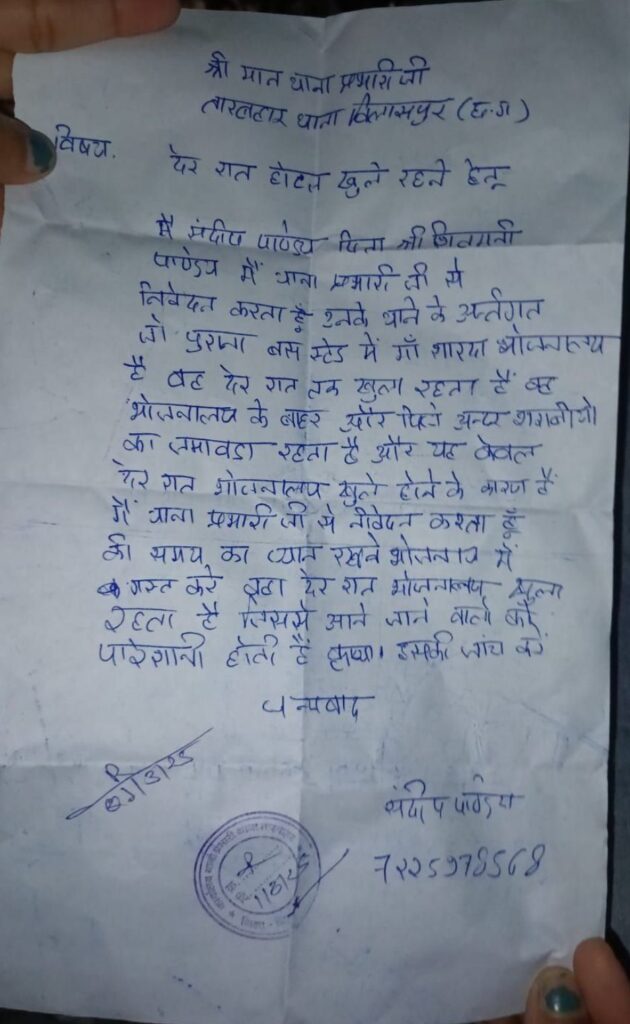 श्री मान थाना प्रभारी जी
तारबहार थाना विलासपुर (छ.ग)
विषय. देर रात होटल खुले रहने हेतू
मैं संदीप पाण्डेय पिता श्री
पाण्डेय मैं थाना प्रभारी जी से
निवेदन करता हूँ उनके थाने के अर्न्तगत
जो पुराना बस स्टेड में माँ शारदा भोजनालय
है वह देर रात तक खुला रहता हैं वह
भोजनालय के बाहर और अन्दर शराबीयो
का जमावडा रहता है और यह केवल
देर रात भोजनालय खुले होने के कारण हैं
मैं थाना प्रभारी जी से नीवेदन करता हूँ
की समय का ध्यान रखने भोजनालय में
गस्त करे वहा देर रात भोजनालय खुला
रहता है जिससे आने जाने वालो को
पारेशानी होती हैं कृप्या इसकी जांच करें
धन्यवाद
संदीप पाण्डेय
7225978568